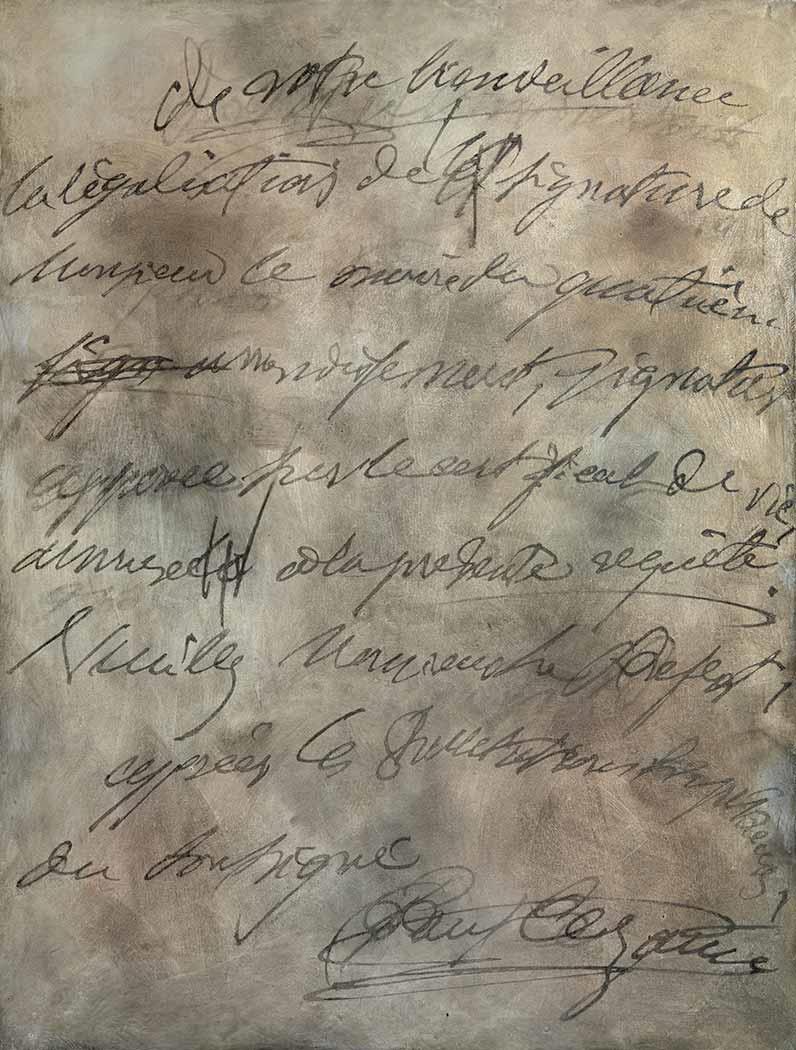 de votre bienveillance
la légalisation de la signature de
Monsieur le maire du quatrièm
arrondissement, signature
apposée sur le certificat de vie,
annexé à la présente requête.
Veuillez Monsieur le Préfet,
agréer les salutations empressées,
du soussigné
Paul Cezanne